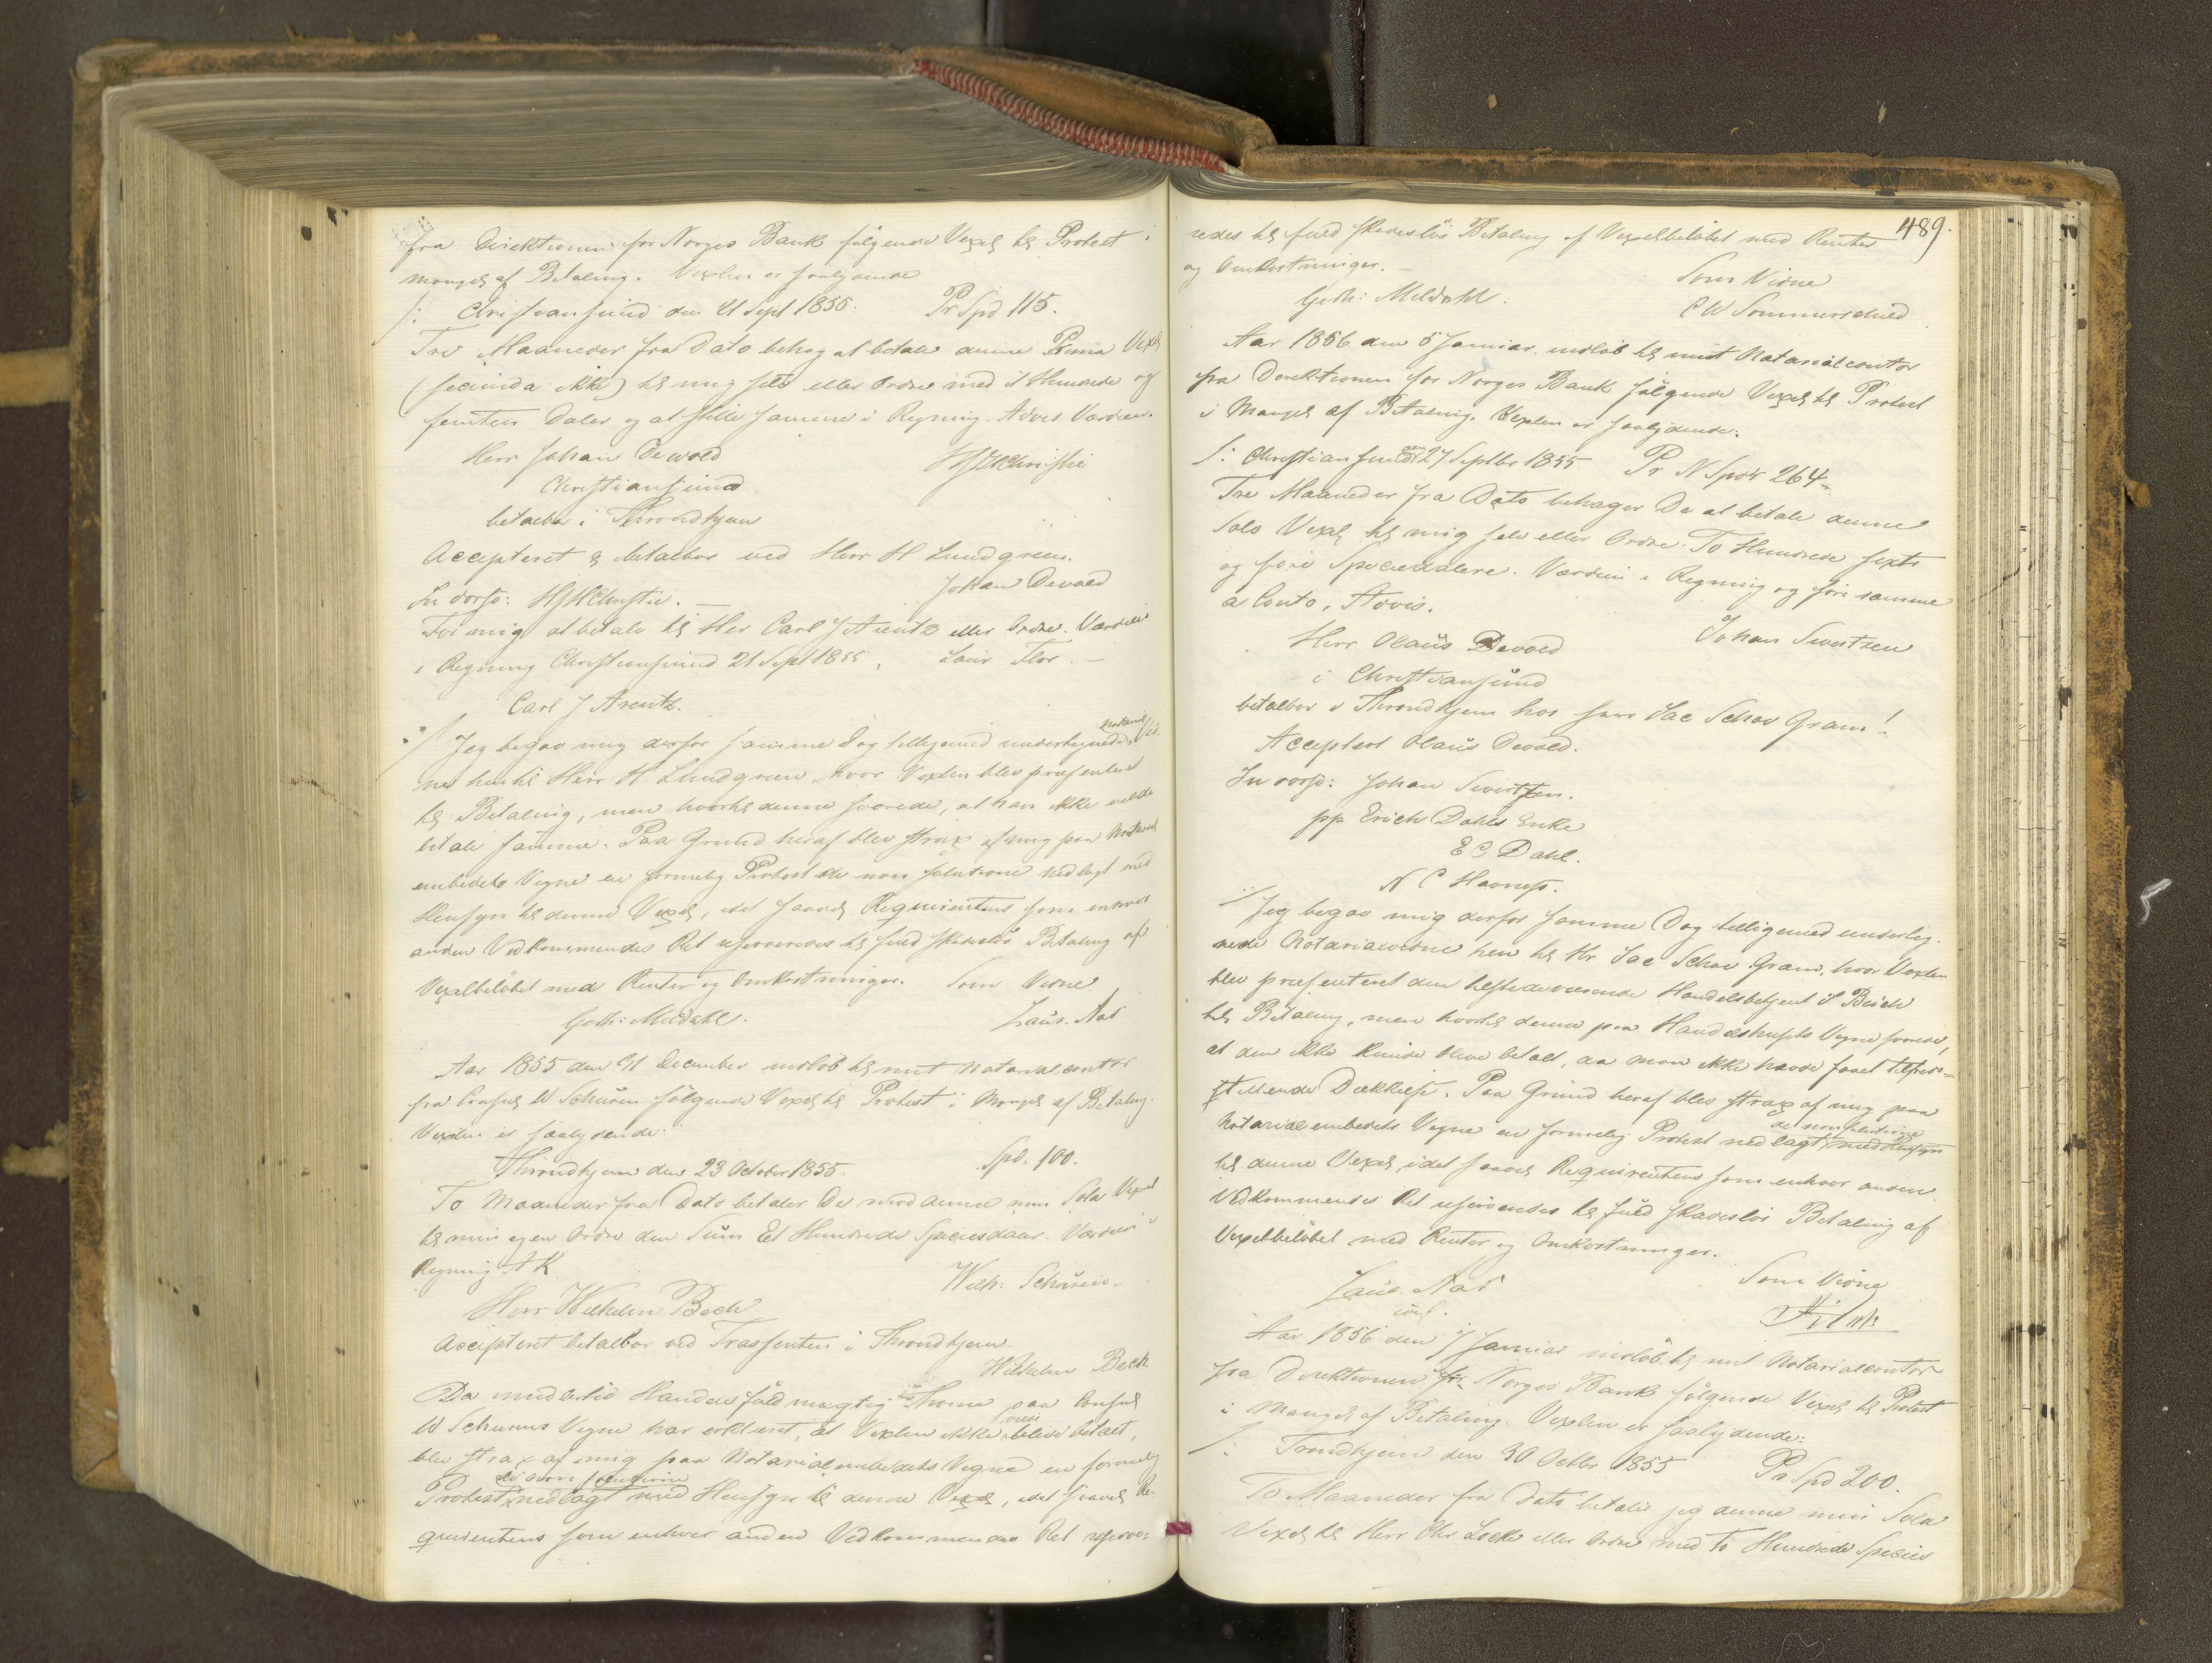 fra Direktionen for Norges Bank følgende Vexel til Protest i
mangel af Betaling. Vexlen er saalydende
/: Christiansund den 21 Sept 1855. Pr Spd 115.
Tre Maaneder fra Dato behag at betale denne Prima Vexel
(secunda ikke) til mig selv eller Ordre med Et Hundrede og
femten Daler og at stille samme i Regning. Advis Værdien.
Herr Johan Dewold HJHChristie
Christiansund
betalbar i Throndhjem
Accepteret & betalbar ved Herr H Lundgreen.
Johan Devold
In dorso: HJHChristie. –
For mig at betale til Her Carl J Arentz eller Ordre. Værdien
i Regning Christiansund 21 Sept 1855, Laur Flor. –
Carl J Arentz.
/ Jeg begav mig derfor samme Dag tilligemed undertegnede Notarialvid-
ner hen til Herr H. Lundgreen, hvor Vexlen blev præsenteret
til Betaling, men hvortil denne svarede, at han ikke vilde
betale samme. Paa Grund heraf blev strax af mig paa Notarial
embedets Vegne en formelig Protest de non solutione nedlagt med
Hensyn til denne Vexel, idet saavel Requirentens som enhver
anden Vedkommendes Ret reserveredes til fuld skadesløs Betaling af
Vexelbeløbet med Renter og Omkostninger. Som Vidne
Goth: Meldahl. Laur. Aas
Aar 1855 den 31 December indløb til mit Notarialcontor
fra Consul W Schüren følgende Vexel til Protest i Mangel af Betaling.
Vexlen er saalydende:
Throndhjem den 23 October 1855. Spd. 100.
To Maaneder fra Dato betaler De mod denne min Sola Vexel
til min egen Ordre den Sum Et Hundrede Speciesdaler. Værdien i
Regning A K Wilh. Schüren.
Herr Wilhelm Beck
Accepteret betalbar ved Trassenten i Throndhjem.
Wilhelm Beck
Da imidlertid Handelsfuldmægtig Thome paa Consul
W Schürens Vegne har erklæret, at Vexlen ikke vilde blive betalt,
blev strax af mig paa Notarialembedets Vegne en formelig
Protest de non solutione nedlagt med Hensyn til denne Vexel, idet saavel Re-
quirentens som enhver anden Vedkommendes Ret reserve-
489.
redes til fuld skadesløs Betaling af Vexelbeløbet med Renter
og Omkostninger. – Som Vidne
Goth: Meldahl. C W Sommerschield
Aar 1856 den 5 Januar indløb til mit Notarialcontor
fra Direktionen for Norges Bank følgende Vexel til Protest
i Mangel af Betaling. Vexlen er saalydende:
/: Christiansund den 27 Septbr 1855 Pr N Spdr 264 –
Tre Maaneder fra Dato behager De at betale denne
Sola Vexel til mig selv eller Ordre. To Hundrede sexti
og fire Speciedalere. Værdien i Regning og före samme
a Conto, Advis. Johan Swertzen
Herr Olaus Devold
i Christiansund
betalbar i Throndhjem hos Herr Jac Schav Gram!
Accepteret Olaus Devold.
In dorso: Johan Swertzen.
pp Erich Dahls Enke
E C Dahl.
N C Havnes.
/ Jeg begav mig derfor samme Dag tilligemed underteg-
nede Notarialvidne hen til Hr Jac Schav Gram, hvor Vexlen
blev præsenteret den tilstedeværende Handelsbetjent
til Betaling, men hvortil denne paa Handelshusets Vegne svarede,
at den ikke kunde blive betalt, da man ikke havde faaet tilfreds-
stillende Dækkelse. Paa Grund heraf blev strax af mig paa
Notarialembedets Vegne en formelig Protest de non solutione nedlagt med Hensyn
til denne Vexel, idet saavel Requirentens som enhver anden
Vedkommendes Ret reserveredes til fuld skadesløs Betaling af
Vexelbeløbet med Renter og Omkostninger.
Laur. Aas Som Vidne
const.
Aar 1856 den 7 Januar indløb til mit Notarialcontor
fra Direktionen for Norges Bank følgende Vexel til Protest
i Mangel af Betaling. Vexlen er saalydende:
/: Trondhjem den 30 Octbr 1855 Pr Spd 200.
To Maaneder fra Dato betaler jeg denne min Sola
Vexel til Herr Chr Locke eller Ordre med To Hundrede Species